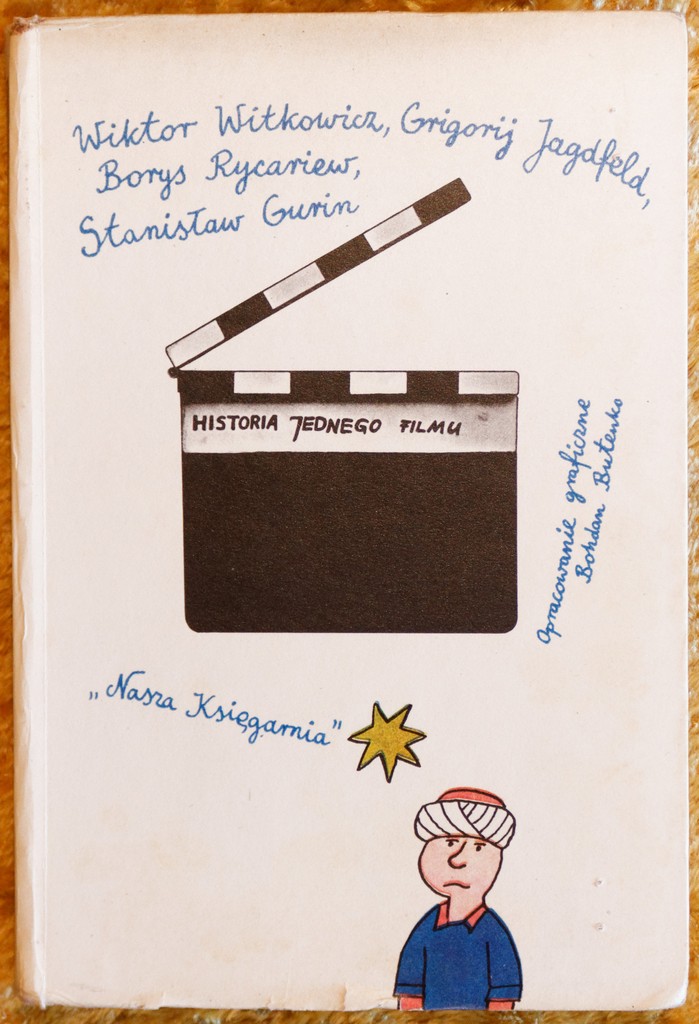 Wiktor Witkowicz, Grigorij Jagdfeld,
Borys Rycariew,
Stanisław Gurin
HISTORIA JEDNEGO FILMU
Opracowanie graficzne
Bohdan Butenko
„Nasza Księgarnia”